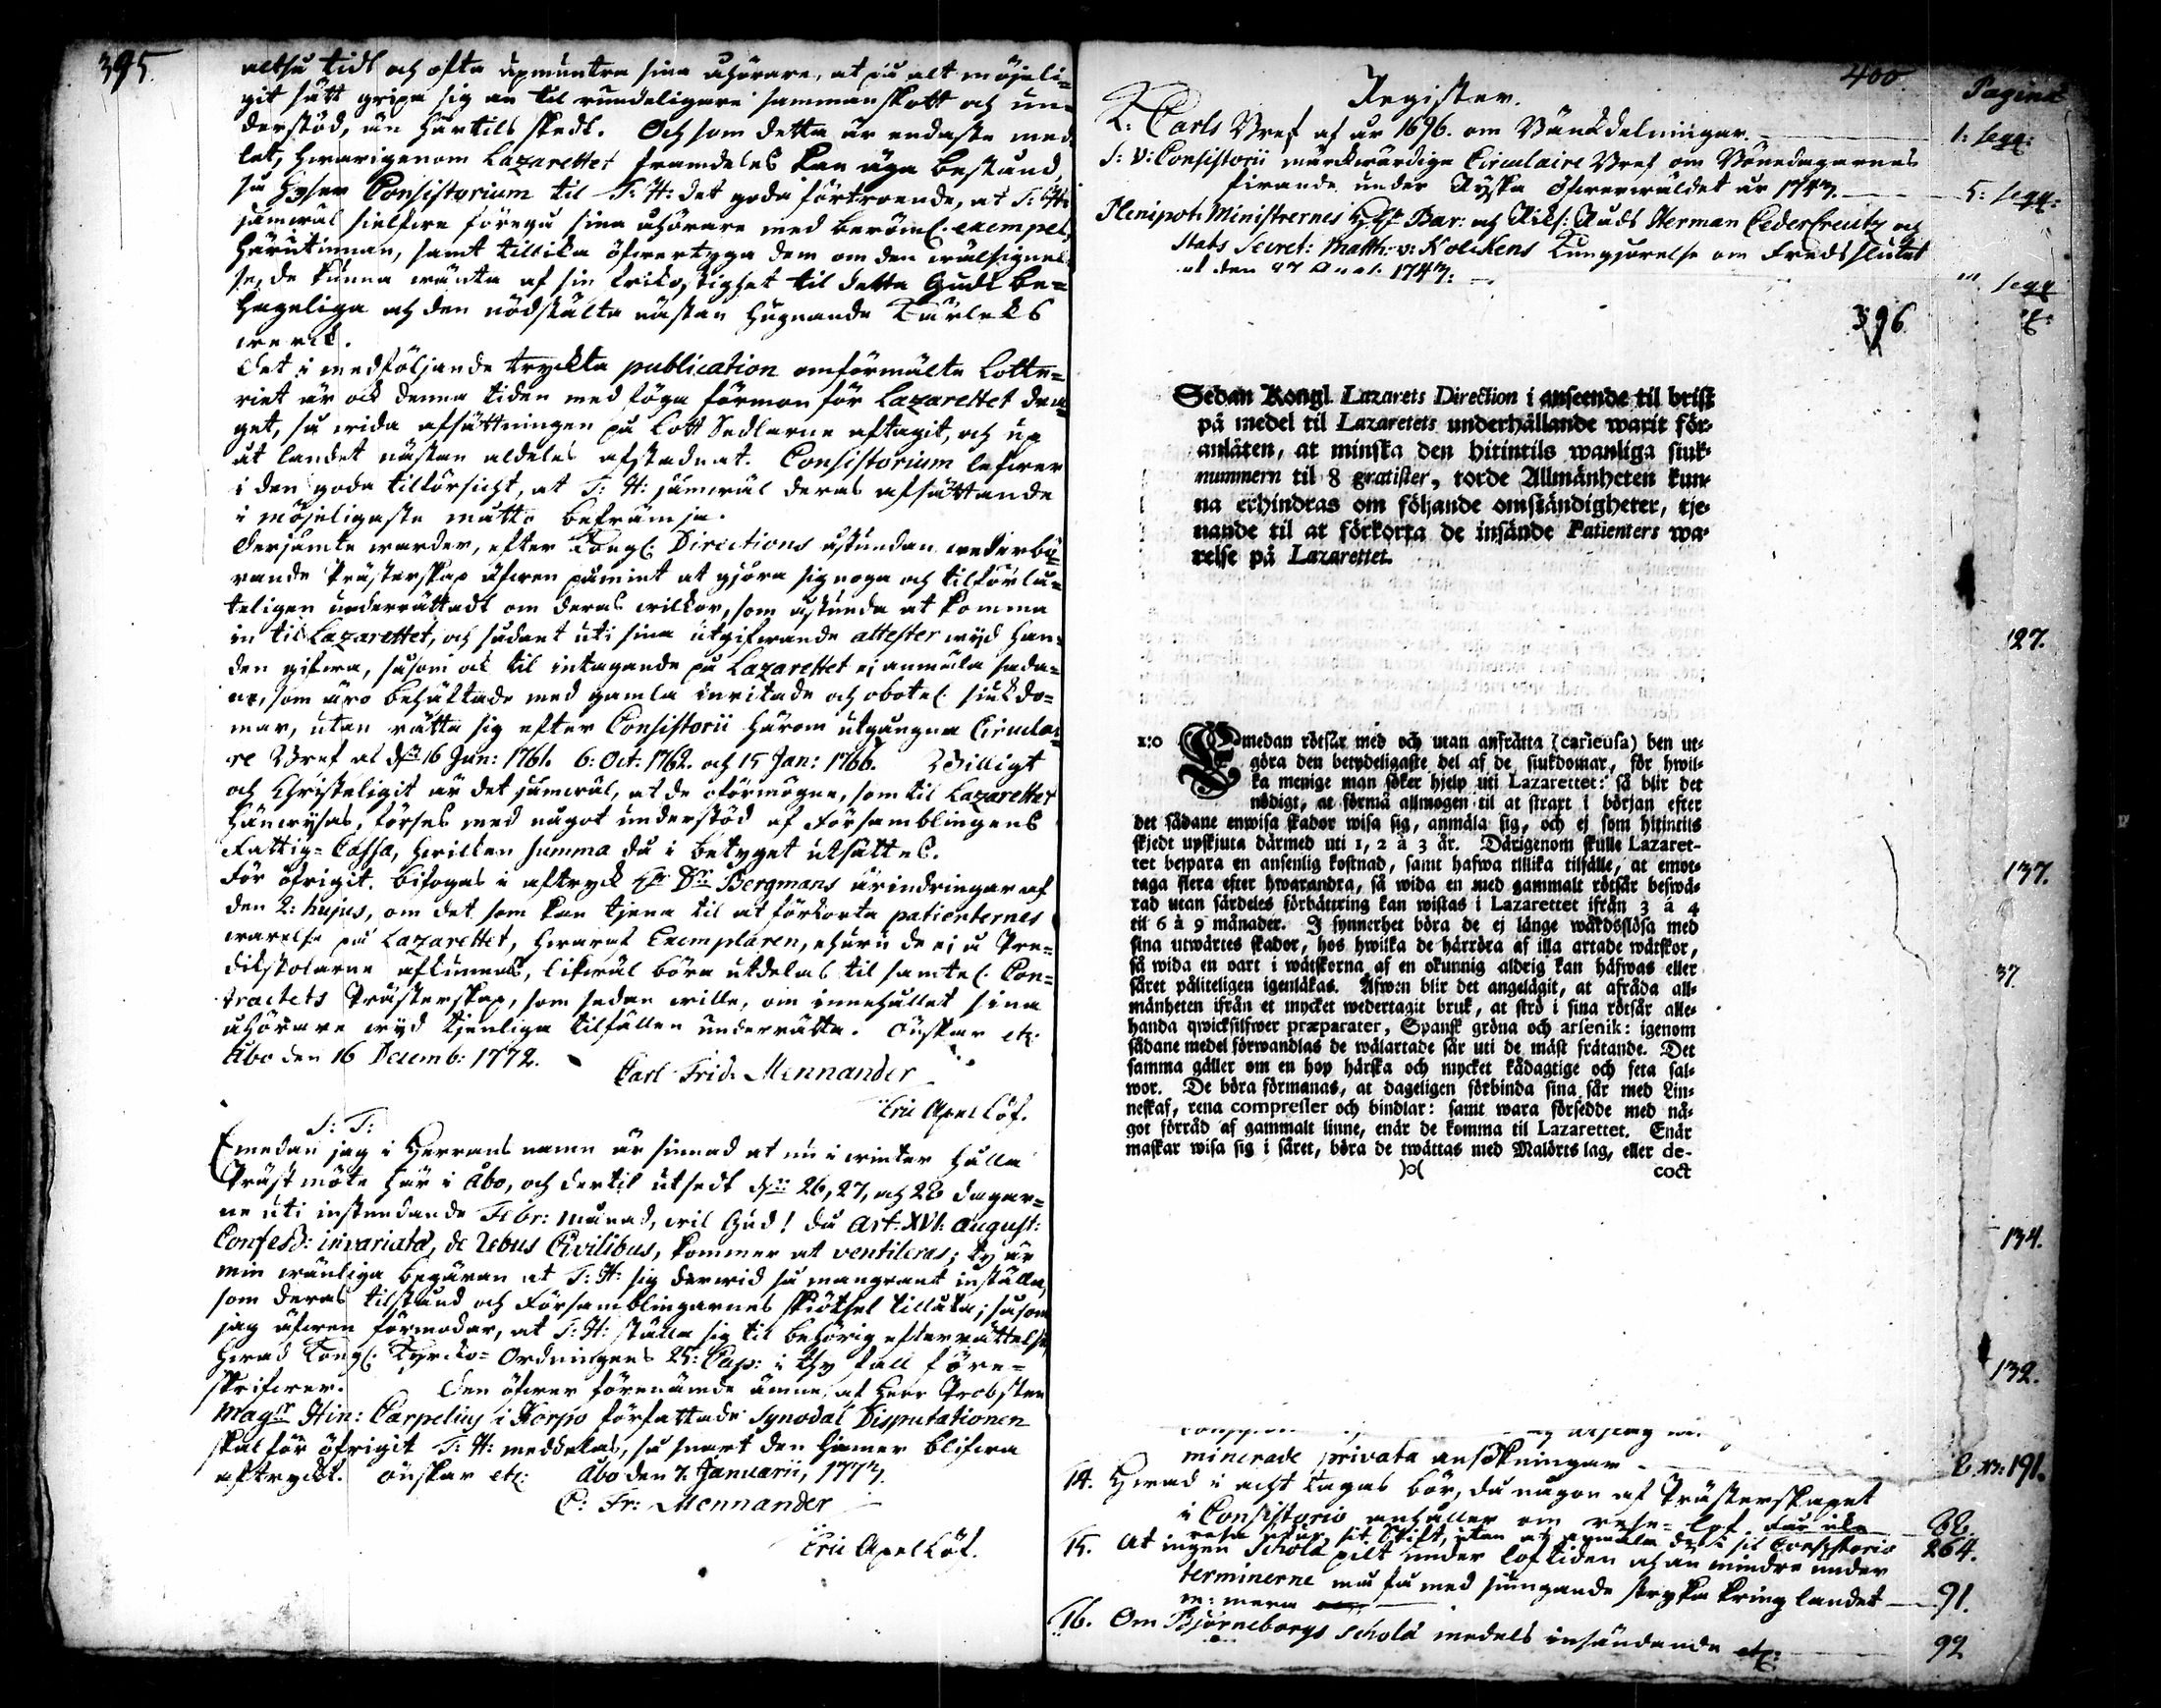 395.
altså tidt och ofta upmuntra sina åhörare, at på alt möjeli=
git sätt gripa sig an til rundeligare sammanskott och un=
derstöd, än härtils skedt. Och som detta är endaste med=
let, hwarigenom Lazarettet framdeles kan äga bestånd,
så hyser Consistorium til T: H: det goda förtroende, at T: H:
jämwäl sielfwe föregå sina åhörare med berömel. exempel
härutinnan, samt tillika öfwertyga dem om den wälsignel=
se, de kunna wänta af sin frikostighet til detta Gudi be=
hageliga och den nödstälta nästan hugnande Kärleks
werck.
Det i medföljande tryckta publication omförmälte Lotte=
riet är ock denna tiden med föga förmon för Lazarettet dra=
get, så wida afsättningen på Lott Sedlarne aftagit, och up
åt landet nästan aldeles afstadnat. Consistorium lefwer
i den goda tilförsicht, at T: H: jämwäl deras afsättande
i möjeligaste måtto befrämja.
Derjämte warder, efter Kongl: Directions åstundan wederbö=
rande Prästerskap äfwen påmint at gjöra sig noga och tilförlå=
teligen underrättadt om deras wilkor, som åstunda at komma
in til Lazarettet, och sådant uti sina utgifwande attester wid han=
den gifwa, såsom ock til intagande på Lazarettet ej anmäla såda=
ne, som äro behäftade med gamla inritade och obotel. siukdo=
mar, utan rätta sig efter Consistorii härom utgångna Circulai=
re Bref af d. 16 Jan: 1761. 6: Oct: 1762. och 15 Jan: 1766. Billigt
och Christeligit är det jämwäl, at de oförmögne, som til Lazarettet
hänwysas, förses med något understöd af Församblingens
Fattig= Cassa, hwilken summa då i betyget utsättes.
För öfrigit. bifogas i aftryck Hr Dr Bergmans ärindringar af
den 2: hujus, om det som kan tjena til at förkorta patienternes
warelse på Lazarettet, hwaraf Exemplaren, ehuru de ej å Pre=
dikstolarne afkunnas, likwäl böra utdelas til samtel. Con=
tractets Prästerskap, som sedan wille, om innehållet sina
åhörare wyd tjenliga tilfällen underrätta. Önskar etc:
Åbo den 16 Decemb: 1772.
Carl Frid. Mennander
Eric Apellöf.
S: T:
Emedan jag i Herrans namn är sinnad at nu i winter hålla
Prästmöte här i Åbo, och dertil utsedt de 26, 27, och 28 dagar=
ne uti instundande Febr: månad, wil Gud! då Art: XVI: August:
Confess: invariatæ, de Rebus Civilibus, kommer at ventileras; ty är
min wänliga begäran at T: H: sig derwid så mangrant inställa,
som deras tilstånd och Församblingarnes skiötsel tillåta; såsom
jag äfwen förmodar, at T: H: ställa sig til behörig efterrättelse,
hwad Kongl. Kyrcko= Ordningens 25: Cap: i thy fall före=
skrifwer. Den öfwer förenämde ämne, af Herr Probsten
Magr Hin: Carpelius i Korpo författade Synodal Disputationen
skal för öfrigit T: H: meddelas, så snart den hinner blifwa
aftryckt. önskar etc: Åbo den 7. Januarii, 1773.
C: Fr: Mennander
Eric Apellöf.
400.
Register.
Pagina
K: Carls Bref af år 1696. om Bänkdelningar. 1: seqq:
S: V: Consistorii märckwärdiga Circulaire Bref om Bönedagarnes
firande under Ryska öfwerwäldet år 1743. 5: seqq:
Plenipot: Ministrernes Bar: och Riks: Råds Herman Cedercreutz och
Stats Secret: Matth: v: Nolckens Kungjörelse om Freds slutet
1743: seqq
396
Sedan Kongl. Lazarets Direction i anseende til brist
på medel til Lazaretets underhållande warit för-
anläten, at minska den hitintils wanliga siuk-
nummern til 8 gratister, torde Allmänheten kun-
na erhindras om följande omständigheter, tje-
nande til at förkorta de insände Patienters wa-
relse på Lazarettet.
1:o Emedan rötsår med och utan anfrätta (carieusa) ben ut-
göra den betydeligaste del af de siukdomar, för hwil-
ka menige man söker hjelp uti Lazarettet: så blir det
nödigt, at förmå allmogen til at straxt i början efter
det sådane enwisa skador wisa sig, anmäla sig, och ej som hitintils
skjedt upskjuta därmed uti 1, 2 à 3 år. Därigenom skulle Lazaret-
tet bespara en ansenlig kostnad, samt hafwa tillika tilfälle, at emot-
taga flera efter hwarandra, så wida en med gammalt rötsår beswä-
rad utan särdeles förbättring kan wistas i Lazarettet ifrån 3 á 4
til 6 à 9 månader. I synnerhet böra de ej länge wårdslösa med
sina utwärtes skador, hos hwilka de härröra af illa artade wätskor,
så wida en oart i wätskorna af en okunnig aldrig kan häfwas eller
såret påliteligen igenläkas. Äfwen blir det angelägit, at afråda all-
mänheten ifrån et mycket wedertagit bruk, at strö i sina rötsår alle-
handa qwicksilfwer præparater, Spansk gröna och arsenik: igenom
sådane medel förwandlas de wälartade sår uti de mäst frätande. Det
samma gäller om en hop härska och mycket kådagtige och feta sal-
wor. De böra förmanas, at dageligen förbinda sina sår med Lin-
neskaf, rena compresser och bindlar: samt wara försedde med nå-
got förråd af gammalt linne, enär de komma til Lazarettet. Enär
maskar wisa sig i såret, böra de twättas med Malörts lag, eller de-
)o(
coct
127.
137.
37
134.
132.
minerade privata ansökningar 191.
14. Hwad i acht tagas bör, då någon af Prästerskapet
i Consistorio anhåller om rese= lof. Får icke 88.
resa utur sit Stift, utan at anmäla det i sit Consistorio 264.
15. At ingen Scholæ pilt under loftiden ej än mindre under
terminerne må få med siungande stryka kring landet 91.
m: mera
16. Om Björneborgs Scholæ medels insändande etc: 92